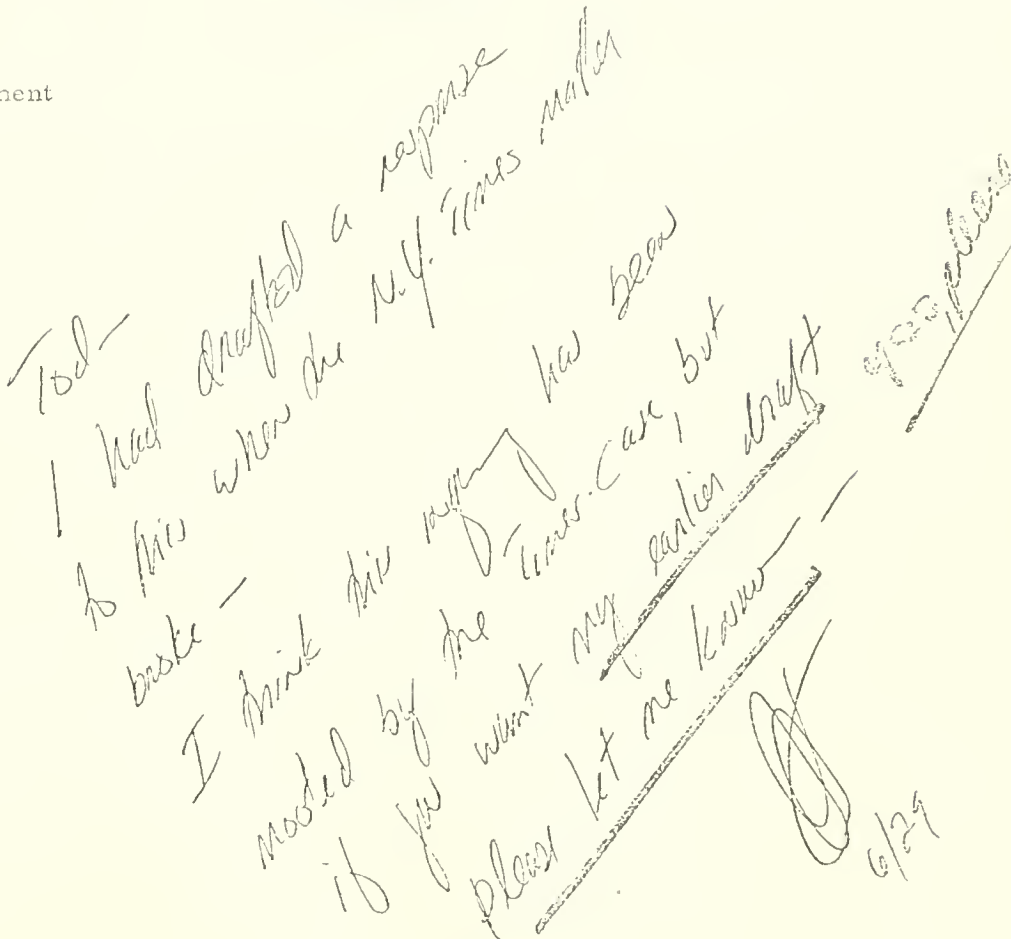 nent
Tod-
I had drafted a response
to this when the N.Y. Times matter
broke -
I think this has been
mooted by the Times. Case, but
if you want my earlier draft
please let me know -
yes please
6/29